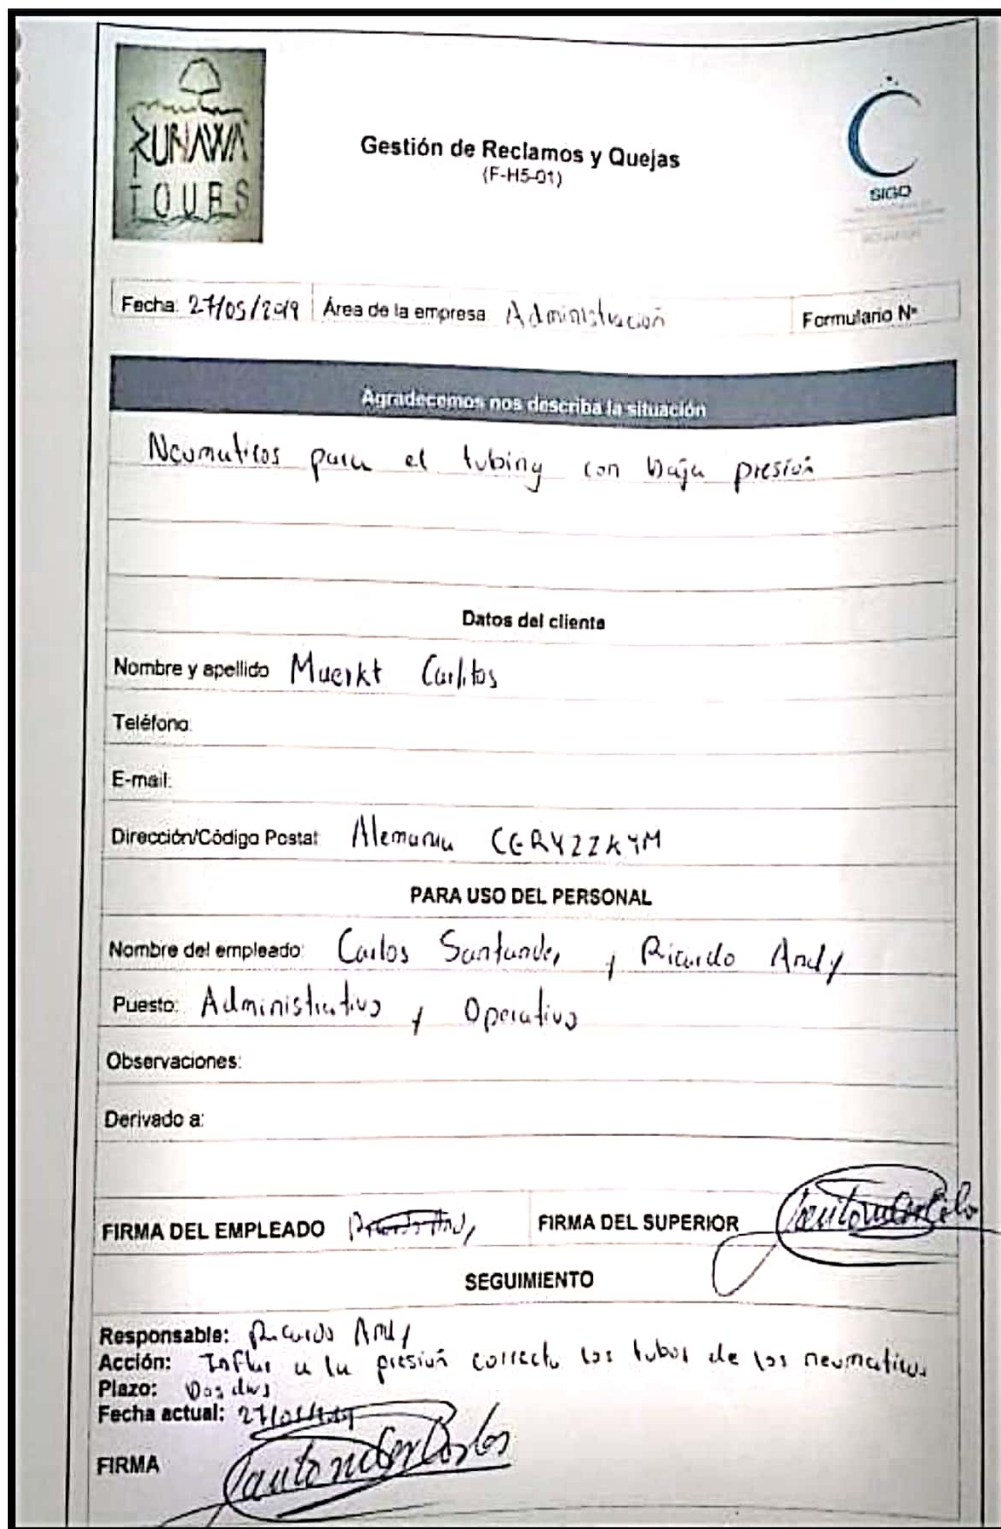 RUNAWA
TOURS
Gestión de Reclamos y Quejas
(F-H5-01)
SIGO
Fecha: 27/05/2019 Área de la empresa Administración Formulario Nº
Agradecemos nos describa la situación
Neumaticos para el tubing con baja presión
Datos del cliente
Nombre y apellido Muerkt Carlitos
Teléfono:
E-mail:
Dirección/Código Postal: Alemania
PARA USO DEL PERSONAL
Nombre del empleado: Carlos Santander y Ricardo Andy
Puesto: Administrativo y Operativo
Observaciones:
Derivado a:
FIRMA DEL EMPLEADO Ricardo Andy FIRMA DEL SUPERIOR
SEGUIMIENTO
Responsable: Ricardo Andy
Acción: Inflar a la presión correcta los tubos de los neumaticos
Plazo: Dos dias
Fecha actual: 27/05/2019
FIRMA